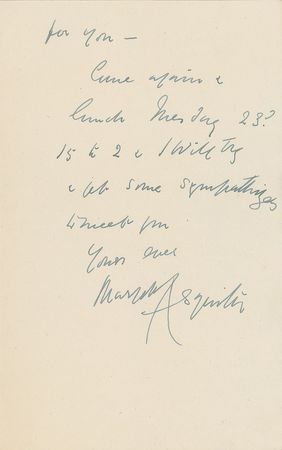 for you —
Come again &
lunch Tuesday 23d
15 to 2 & I will try
& get some sympathizers
to meet you
Yours ever
Margot Asquith